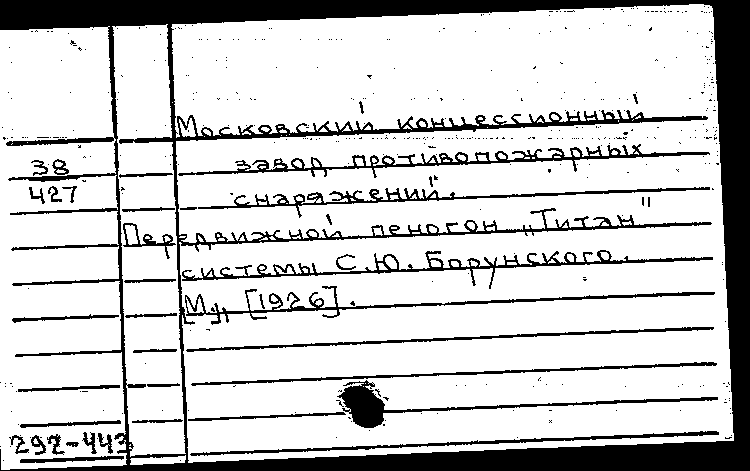 Московский концессионный
38
завод противопожарных
427
снаряжений".
Передвижной пеногон „Титан"
системы С.Ю. Борунского.
[М.], [1926].
292-443